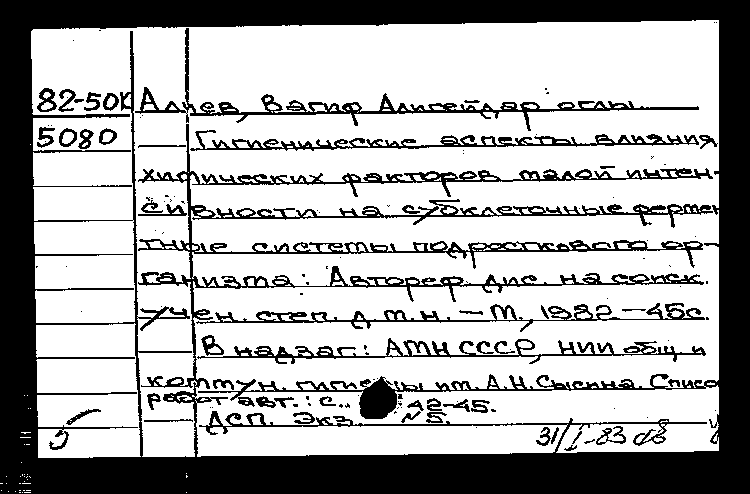 82-50К Алиев, Вагиф Алигейдар оглы
5080 Гигиенические аспекты влияния
химических факторов малой интен-
сивности на субклеточные фермен
тные системы подросткового ор-
ганизма: Автореф. дис. на соиск.
учен. степ. д.м.н. – М., 1982 – 45с.
В надзаг.: АМН СССР, НИИ общ. и
коммун. гигиены им. А.Н. Сысина. Списо
работ авт.: с. 42-45.
ДСП. Экз. №5.
5 31/I-83